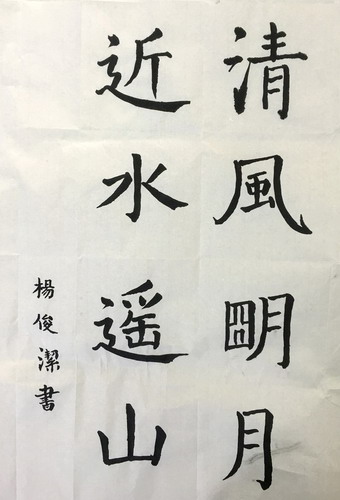 清風朙月
近水遥山
楊俊潔書